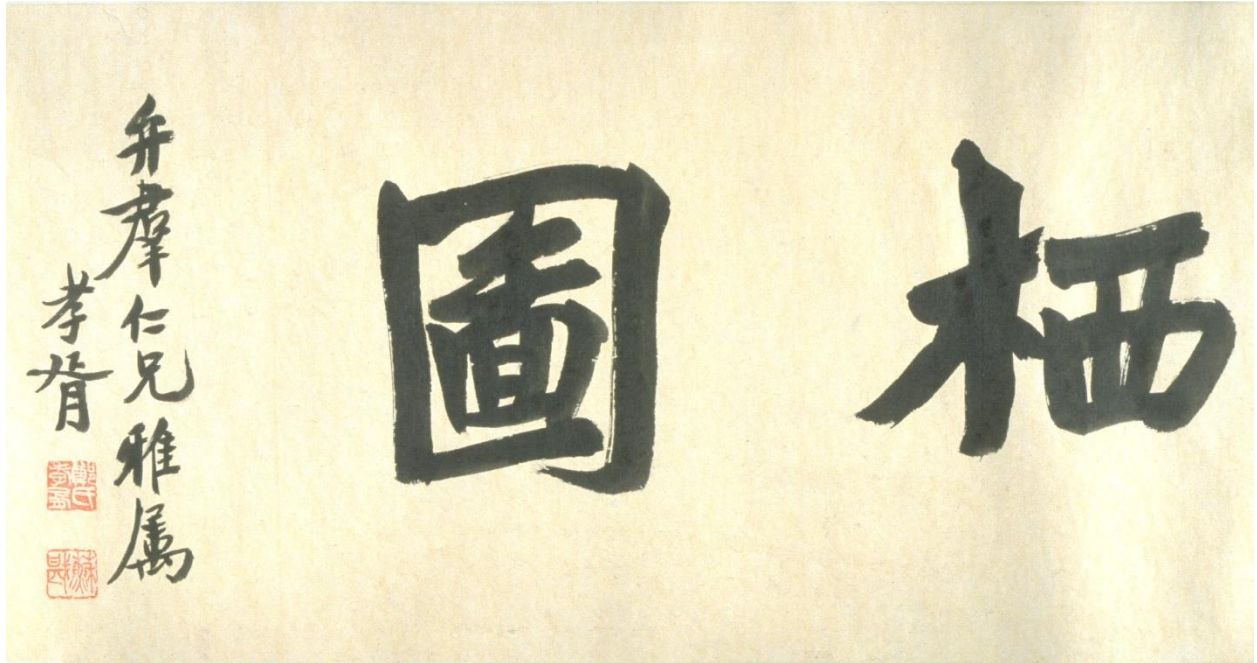 栖圖
弁羣仁兄雅属
孝胥